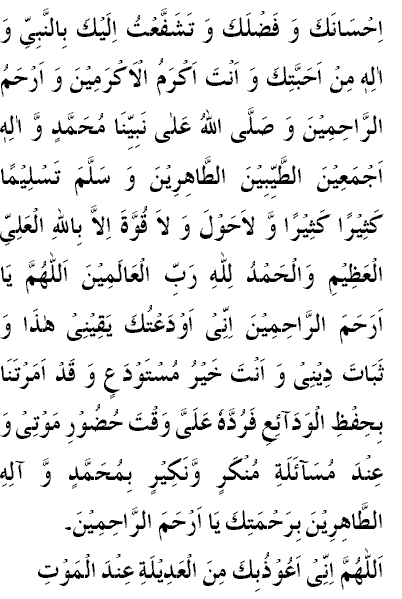 اِحْسَانَكَ وَ فَضْلَكَ وَ تَشَفَّعْتُ اِلَيْكَ بِالنَّبِيِّ وَ
اٰلِهٖ مِنْ اَحَبَّتِكَ وَ اَنْتَ اَكْرَمُ الْاَكْرَمِيْنَ وَ اَرْحَمُ
الرَّاحِمِيْنَ وَ صَلَّى اللهُ عَلٰى نَبِيِّنَا مُحَمَّدٍ وَّ اٰلِهٖ
اَجْمَعِيْنَ الطَّيِّبِيْنَ الطَّاهِرِيْنَ وَ سَلَّمَ تَسْلِيْمًا
كَثِيْرًا كَثِيْرًا وَّ لاَحَوْلَ وَ لاَ قُوَّةَ اِلاَّ بِاللهِ الْعَلِيِّ
الْعَظِيْمِ وَالْحَمْدُ لِلّٰهِ رَبِّ الْعَالَمِيْنَ اَللّٰهُمَّ يَا
اَرْحَمَ الرَّاحِمِيْنَ اِنِّيْ اَوْدَعْتُكَ يَقِيْنِيْ هٰذَا وَ
ثَبَاتَ دِيْنِيْ وَ اَنْتَ خَيْرُ مُسْتَوْدَعٍ وَ قَدْ اَمَرْتَنَا
بِحِفْظِ الْوَدَآئِعِ فَرُدَّهٗ عَلَيَّ وَقْتَ حُضُوْرِ مَوْتِيْ وَ
عِنْدَ مُسَآئَلَةِ مُنْكَرٍ وَّنَكِيْرٍ بِمُحَمَّدٍ وَّ آلِهِ
الطَّاهِرِيْنَ بِرَحْمَتِكَ يَا اَرْحَمَ الرَّاحِمِيْنَ۔
اَللّٰهُمَّ اِنِّيْ اَعُوْذُبِكَ مِنَ الْعَدِيْلَةِ عِنْدَ الْمَوْتِ